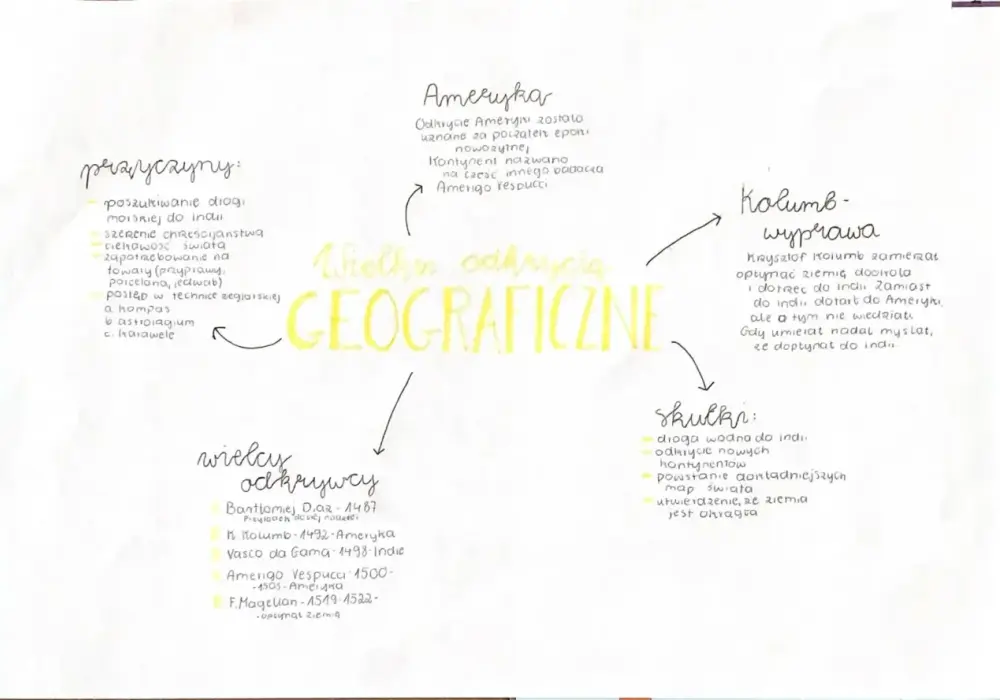 Wielkie odkrycia
GEOGRAFICZNE
Ameryka
Odkrycie Ameryki zostało
uznane za początek epoki
nowożytnej
Kontynent nazwano
na cześć innego badacza
Amerigo Vespucci
przyczyny:
poszukiwanie drogi
morskiej do indii
szerzenie chrześcijaństwa
ciekawość świata
zapotrzebowanie na
towary (przyprawy,
porcelana, jedwab)
postęp w technice żeglarskiej
a. kompas
b. astrolagium
c. karawele
Kolumb-
wyprawa
Krzysztof Kolumb zamierzał
opłynąć ziemię dookoła
i dotrzeć do indii. Zamiast
do indii dotarł do Ameryki,
ale o tym nie wiedział.
Gdy umierał nadal myślał,
że dopłynął do indii.
skutki:
droga wodna do indii
odkrycie nowych
kontynentów
powstanie dokładniejszych
map świata
utwierdzenie, że ziemia
jest okrągła
wielcy
odkrywcy
Bartłomiej Diaz - 1487
Przylądek dobrej nadziei
K. Kolumb - 1492 - Ameryka
Vasco da Gama - 1498 - Indie
Amerigo Vespucci - 1500 -
- 1505 - Ameryka
F. Magellan - 1519 - 1522 -
- opłynął ziemię